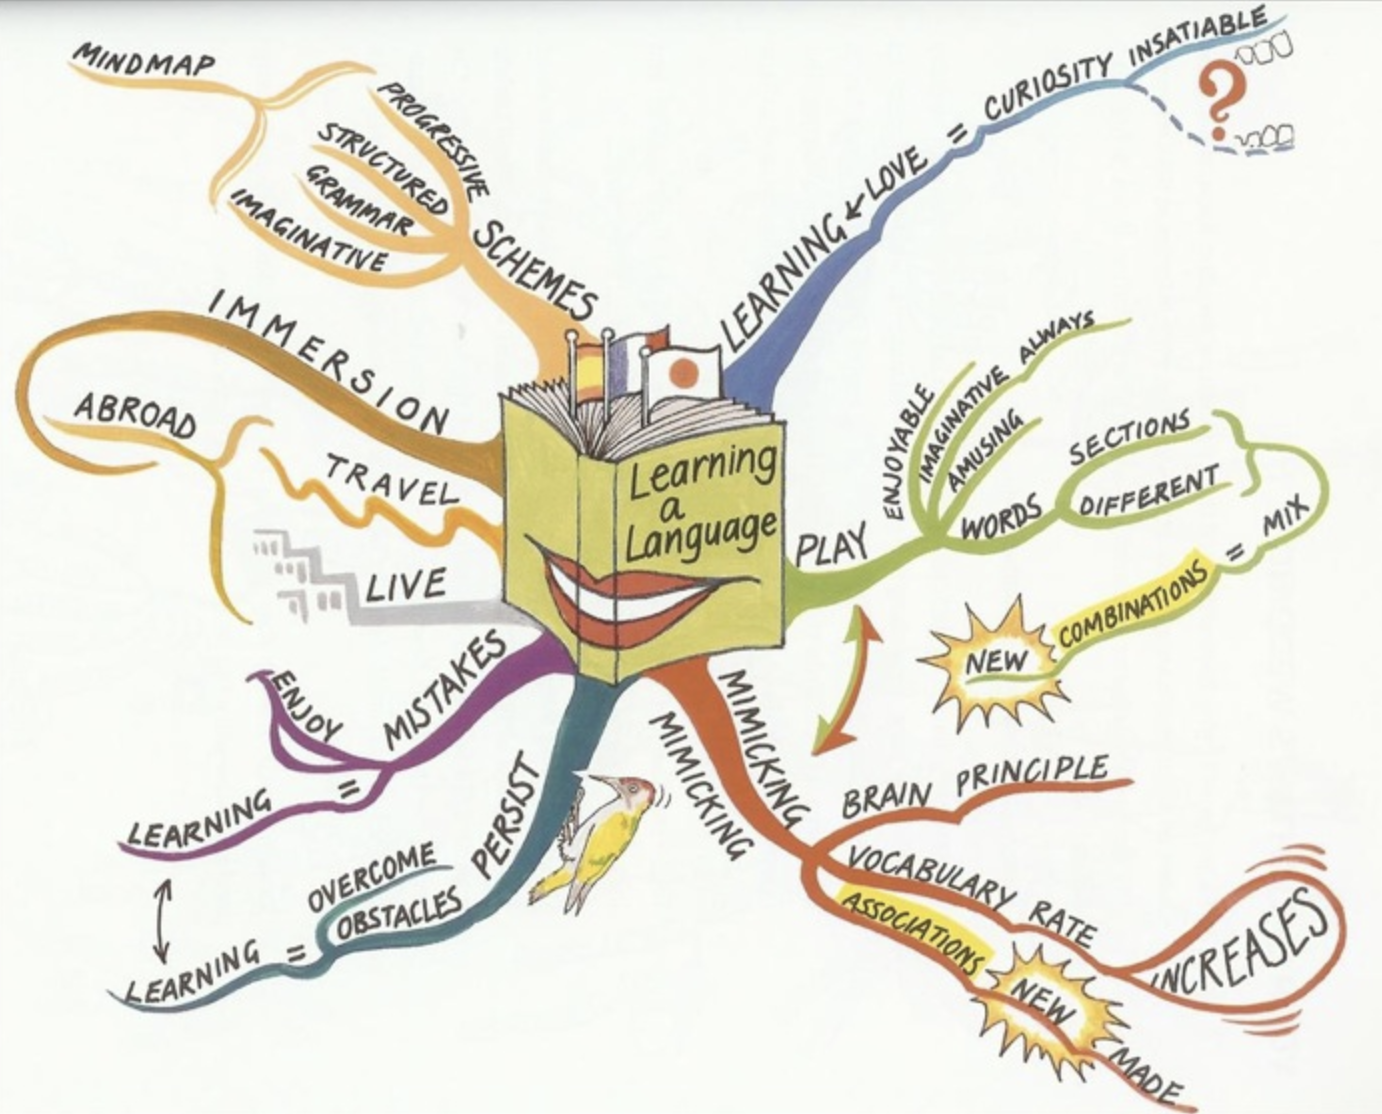 Learning
a
Language
LEARNING
LOVE
=
CURIOSITY INSATIABLE
?
PLAY
ENJOYABLE
IMAGINATIVE ALWAYS
AMUSING
WORDS
SECTIONS
DIFFERENT
MIX
=
COMBINATIONS
NEW
MIMICKING
MIMICKING
BRAIN PRINCIPLE
VOCABULARY RATE
INCREASES
ASSOCIATIONS
NEW
MADE
PERSIST
OVERCOME
OBSTACLES
=
LEARNING
MISTAKES
ENJOY
=
LEARNING
LIVE
TRAVEL
ABROAD
IMMERSION
SCHEMES
PROGRESSIVE
STRUCTURED
GRAMMAR
IMAGINATIVE
MINDMAP